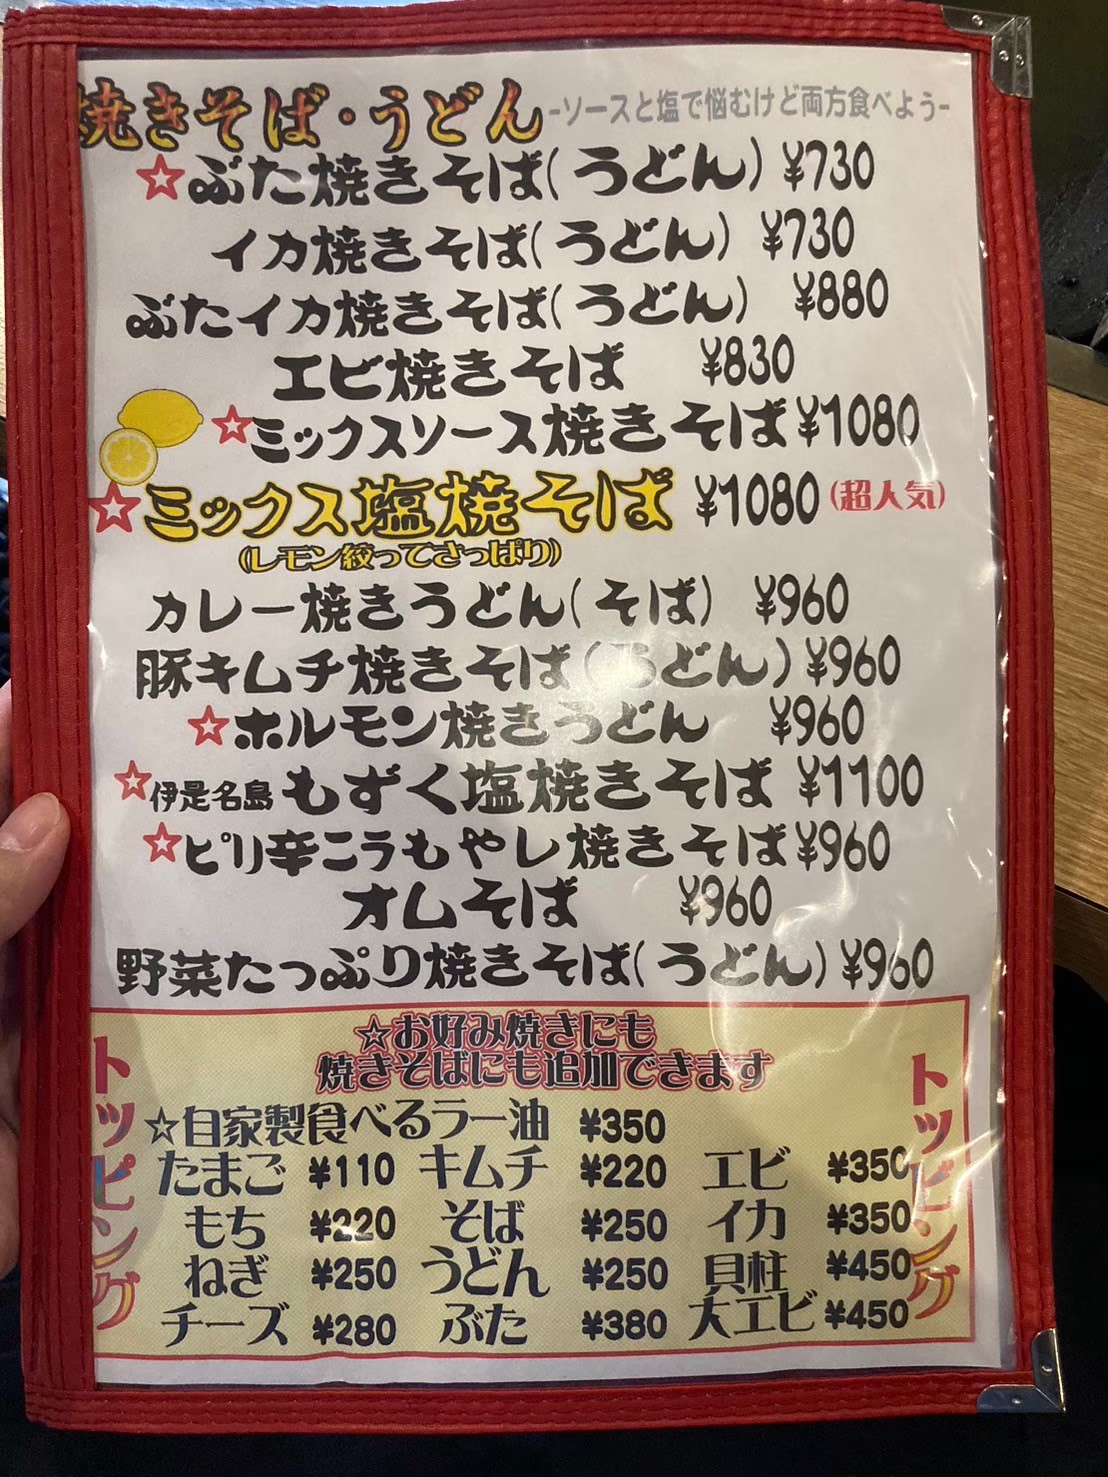 焼きそば・うどん -ソースと塩で悩むけど両方食べよう-
☆ぶた焼きそば(うどん) ¥730
イカ焼きそば(うどん) ¥730
ぶたイカ焼きそば(うどん) ¥880
エビ焼きそば ¥830
☆ミックスソース焼きそば ¥1080
☆ミックス塩焼そば ¥1080 (超人気)
(レモン絞ってさっぱり)
カレー焼きうどん(そば) ¥960
豚キムチ焼きそば(うどん) ¥960
☆ホルモン焼きうどん ¥960
☆伊是名島もずく塩焼きそば ¥1100
☆ピリ辛こうもやし焼きそば ¥960
オムそば ¥960
野菜たっぷり焼きそば(うどん) ¥960
トッピング
☆お好み焼きにも
焼きそばにも追加できます
☆自家製食べるラー油 ¥350
たまご ¥110 キムチ ¥220 エビ ¥350
もち ¥220 そば ¥250 イカ ¥350
ねぎ ¥250 うどん ¥250 貝柱 ¥450
チーズ ¥280 ぶた ¥380 大エビ ¥450
トッピング